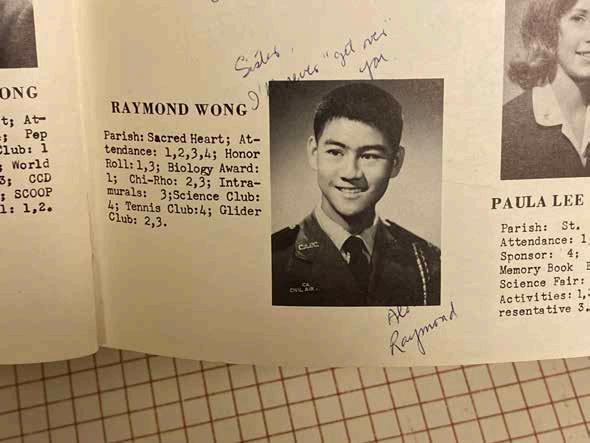 ONG
t; At-
; Pep
Club: 1
; World
3; CCD
; SCOOP
l: 1,2.
Sister,
I'll never "get over"
you.
RAYMOND WONG
Parish: Sacred Heart; At-
tendance: 1,2,3,4; Honor
Roll:1,3; Biology Award:
1; Chi-Rho: 2,3; Intra-
murals: 3;Science Club:
4; Tennis Club:4; Glider
Club: 2,3.
CA
CIVIL AIR
Raymond
PAULA LEE
Parish: St.
Attendance: 1
Sponsor: '4;
Memory Book
Science Fair:
Activities: 1,
resentative 3.